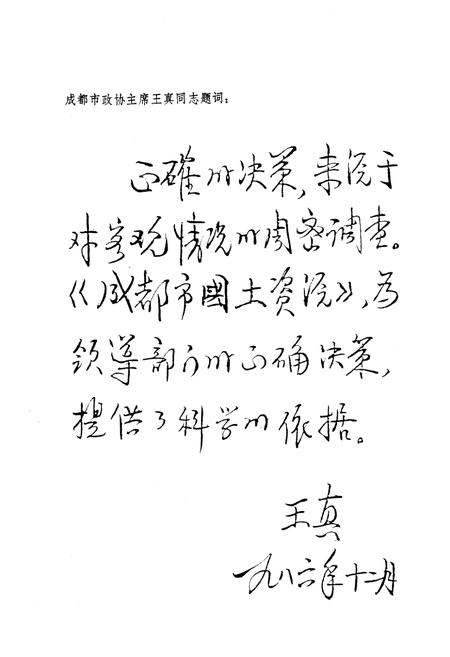 成都市政协主席王真同志题词：
正確的决策，来源于
对客观情况的周密调查。
《成都市國土资源》，为
领导部门的正确决策，
提供了科学的依据。
王真
一九八六年十二月